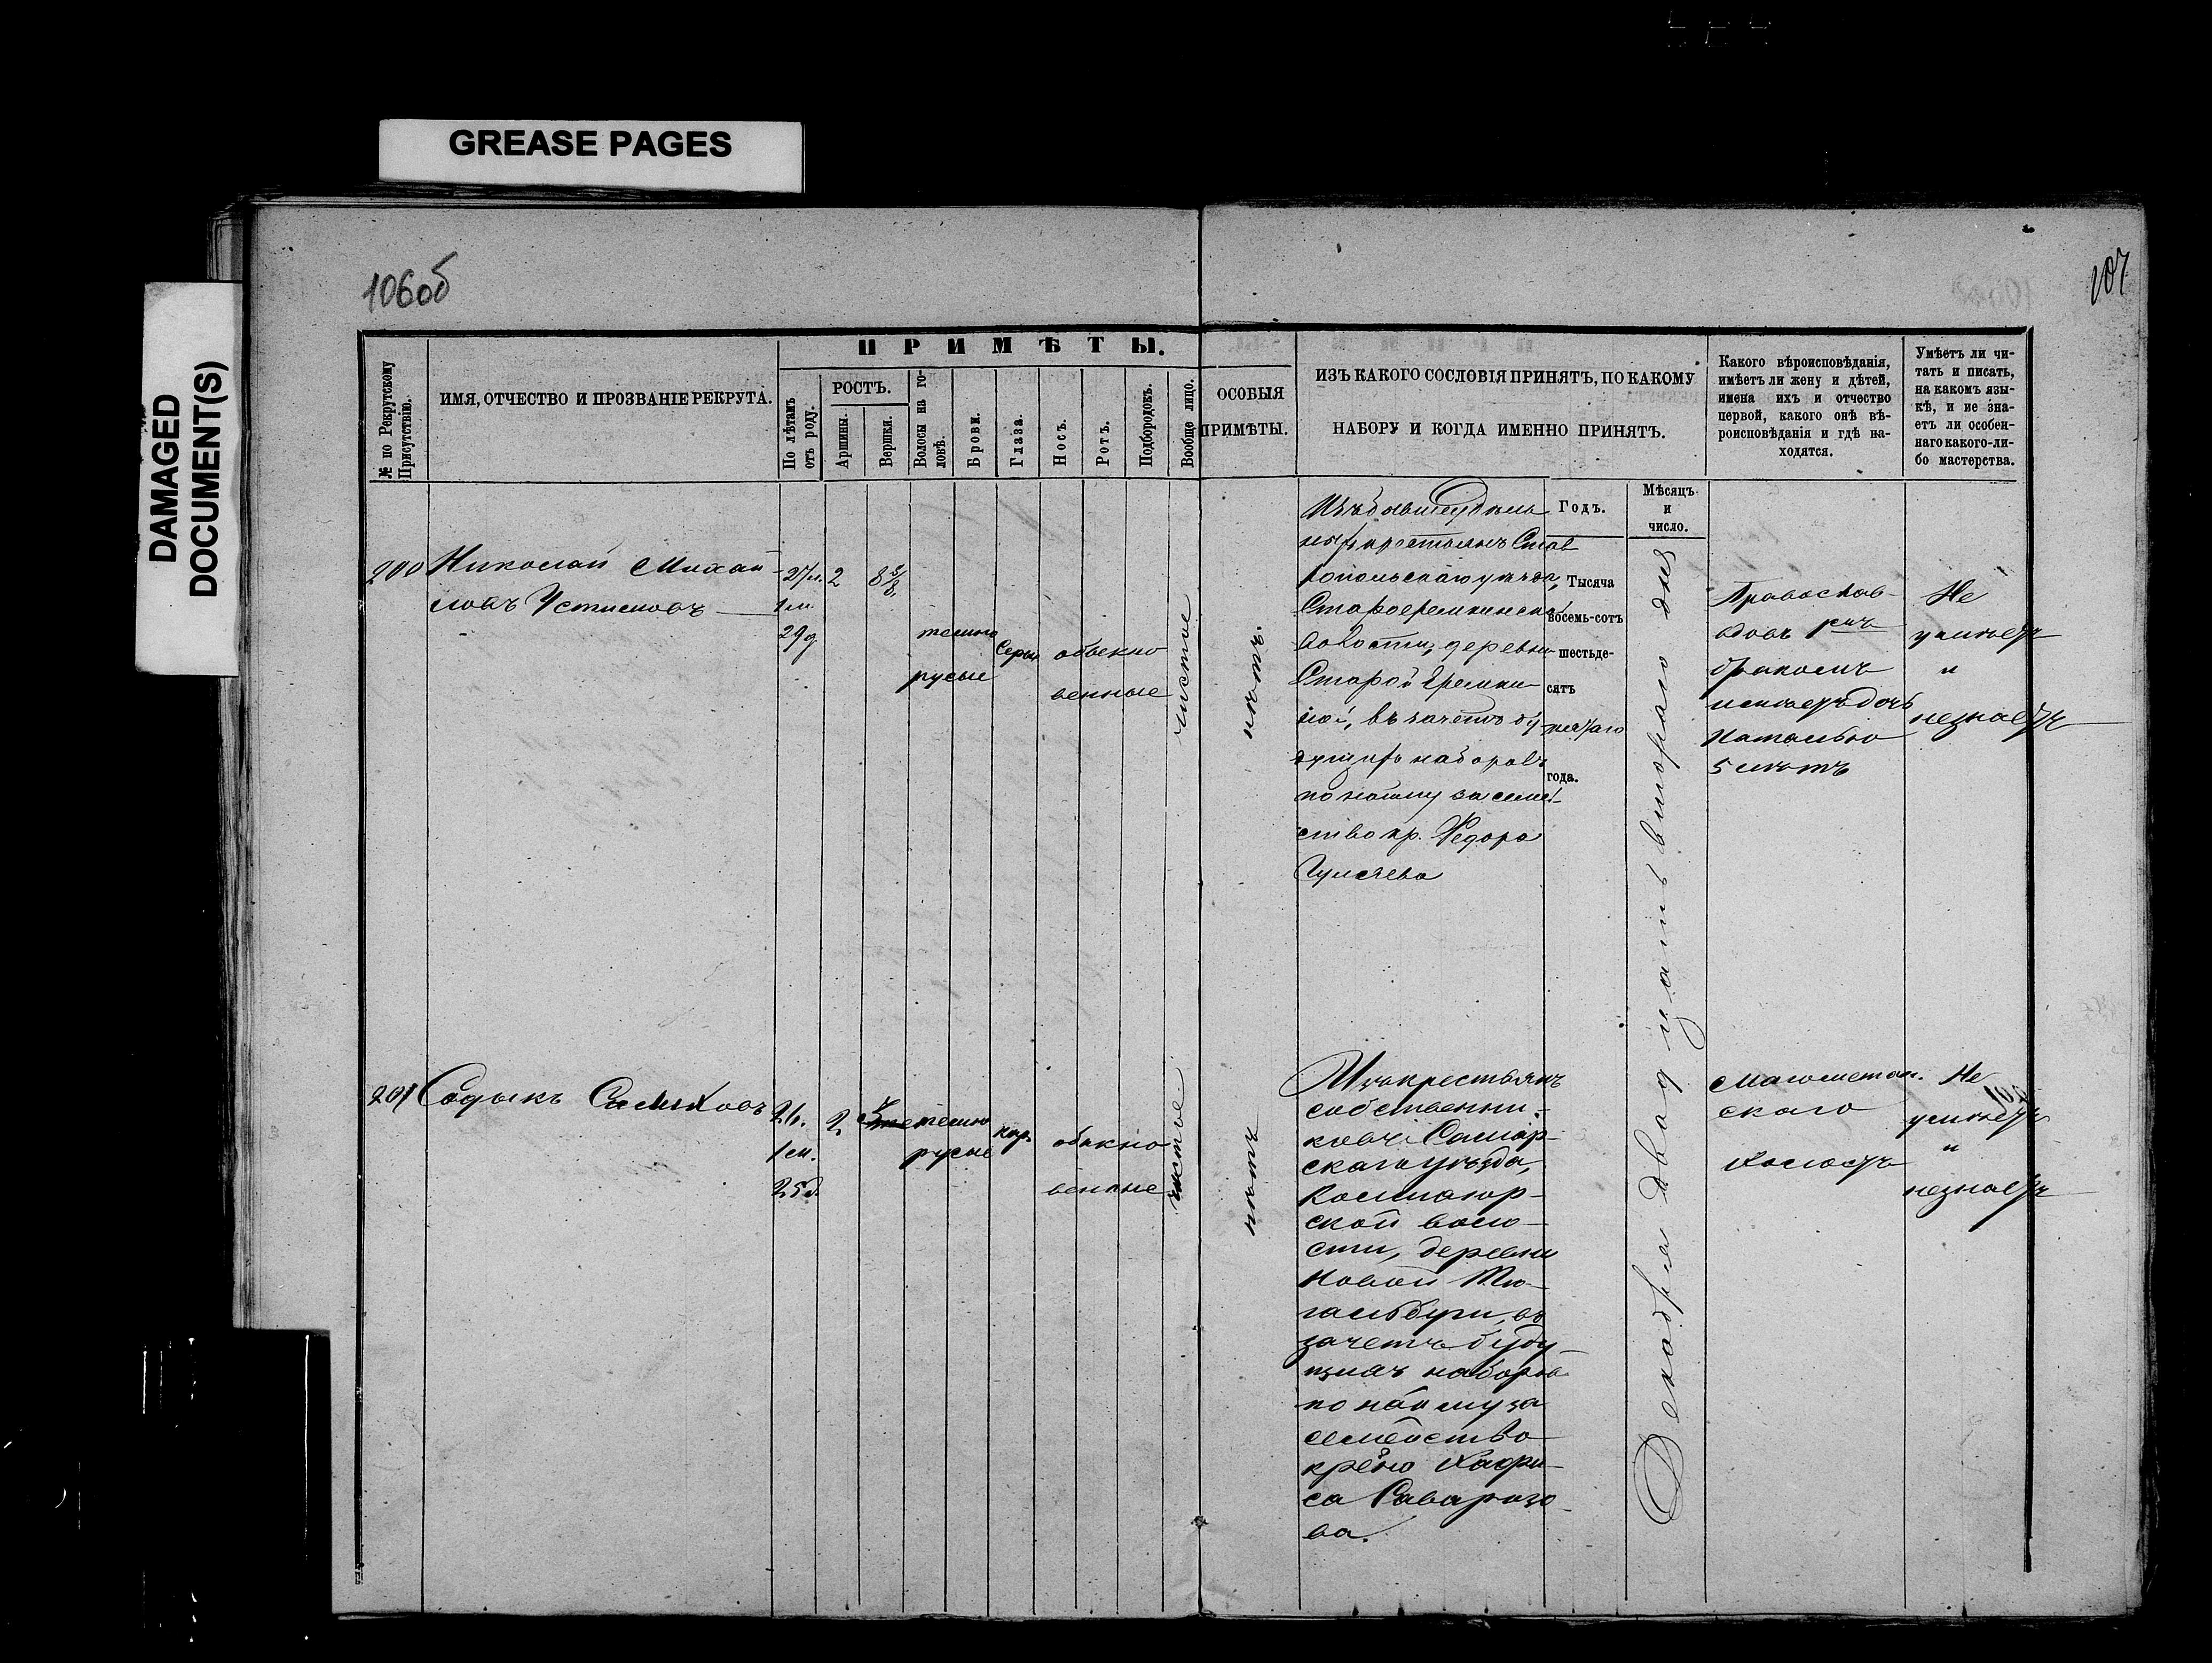 GREASE PAGES
DAMAGED
DOCUMENT(S)
106об
107
ПРИМѢТЫ.
№ по Рекрутскому
Присутствію.
ИМЯ, ОТЧЕСТВО И ПРОЗВАНІЕ РЕКРУТА.
По лѣтамъ
отъ роду.
РОСТЪ.
Аршины.
Вершки.
Волосы на го-
ловѣ.
Брови.
Глаза.
Носъ.
Ротъ.
Подбородокъ.
Вообще лицо.
ОСОБЫЯ
ПРИМѢТЫ.
ИЗЪ КАКОГО СОСЛОВІЯ ПРИНЯТЪ, ПО КАКОМУ
НАБОРУ И КОГДА ИМЕННО ПРИНЯТЪ.
Какого вѣроисповѣданія,
имѣетъ ли жену и дѣтей,
имена ихъ и отчество
первой, какого онѣ вѣ-
роисповѣданія и гдѣ на-
ходятся.
Умѣетъ ли чи-
тать и писать,
на какомъ язы-
кѣ, и не зна-
етъ ли особен-
наго какого-ли-
бо мастерства.
Годъ.
Мѣсяцъ
и
число.
200
Николай Михай-
ловъ Устиновъ
27 л.
1 м.
29 д
2
8 3/8
темно
русые
Серые
обыкно
венные
чистое
нѣтъ.
Изъ бывш удѣль
ныхъ крестьянъ Став
ропольскаго уѣзда,
Староеремкинской
волости, деревни
Старой Еремки-
ной, въ зачетъ бу-
дущихъ наборовъ
по найму за семей-
ство кр. Федора
Тысяча
восемь-сотъ
шестьде-
сятъ
года.
Декабря двадцать втораго дня
Православ-
вдовъ 1мъ
бракомъ
имѣетъ дочь
Наталью
5 лѣтъ
Не
умѣетъ
и
незнаетъ
201
Садыкъ Салиховъ
21.
1 м.
25 д.
2
темно
русые
кар.
обыкно
венные
чистое
нѣтъ
Изъ крестьянъ
собственни-
ковъ Самар-
скаго уѣзда,
ской воло-
сти, деревни
Новой
въ
зачетъ буду-
щихъ наборовъ
по найму за
семейство
кр-но Хафи-
са
ва.
Магометан.
скаго
холостъ
Не
умѣетъ
и
незнаетъ